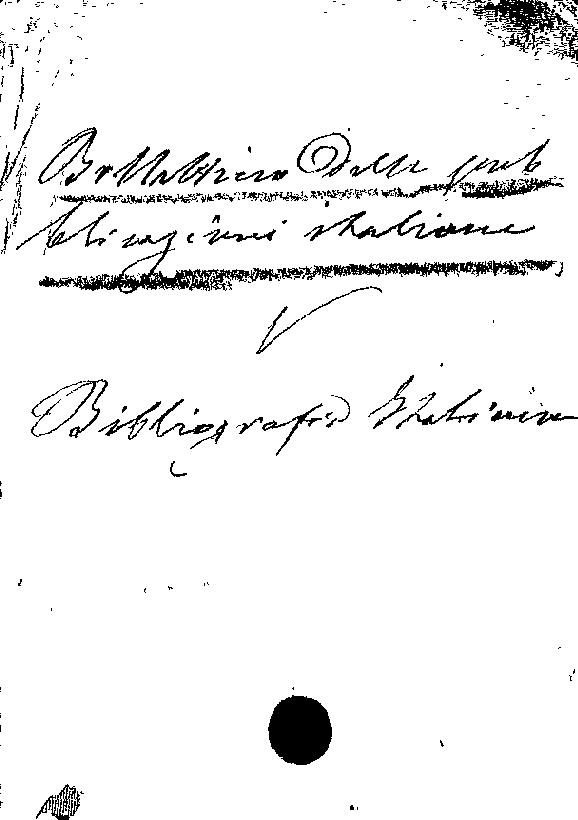 Bollettino delle pub
blicazioni italiane
V
Bibliografia Italiana